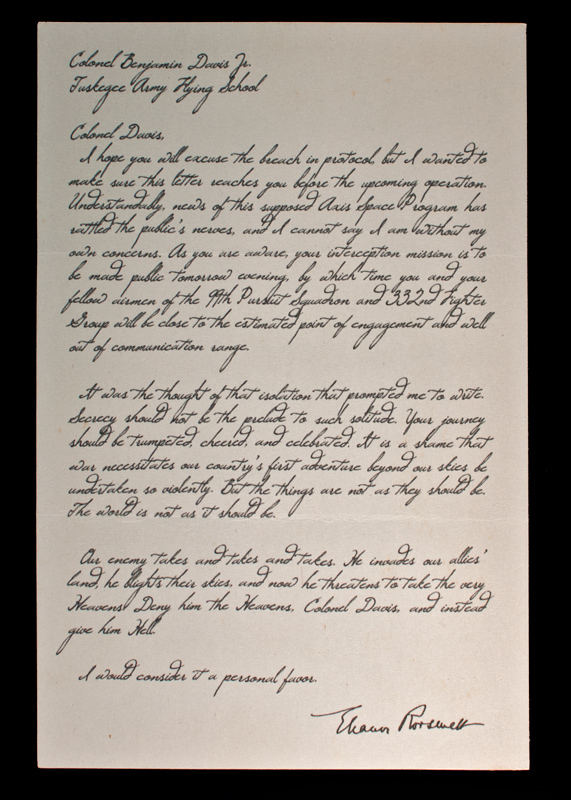 Colonel Benjamin Davis Jr.
Tuskegee Army Flying School
Colonel Davis,
I hope you will excuse the breach in protocol, but I wanted to
make sure this letter reaches you before the upcoming operation.
Understandably, news of this supposed Axis Space Program has
rattled the public's nerves, and I cannot say I am without my
own concerns. As you are aware, your interception mission is to
be made public tomorrow evening, by which time you and your
fellow airmen of the 99th Pursuit Squadron and 332nd Fighter
Group will be close to the estimated point of engagement and well
out of communication range.
It was the thought of that isolation that prompted me to write.
Secrecy should not be the prelude to such solitude. Your journey
should be trumpeted, cheered, and celebrated. It is a shame that
war necessitates our country's first adventure beyond our skies be
undertaken so violently. But the things are not as they should be.
The world is not as it should be.
Our enemy takes and takes and takes. He invades our allies'
land, he blights their skies, and now he threatens to take the very
Heavens. Deny him the Heavens, Colonel Davis, and instead
give him Hell.
I would consider it a personal favor.
Eleanor Roosevelt